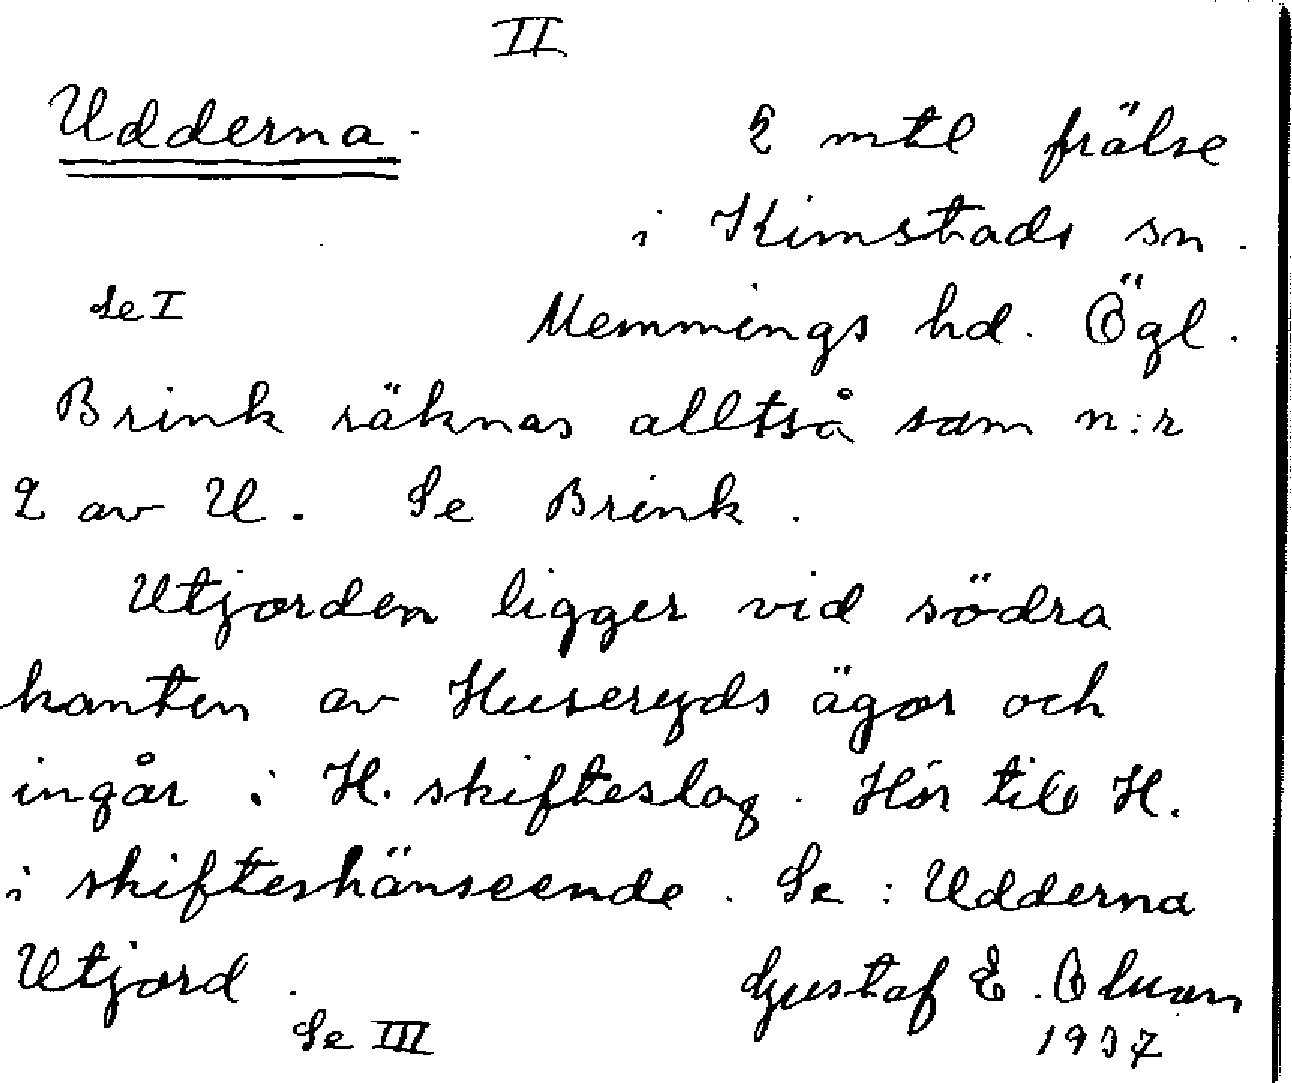 II
Udderna.
2 mtl frälse
i Kimstads sn.
Se I
Memmings hd. Ögl.
Brink räknas alltså som n:r
2 av U. Se Brink.
Utjorden ligger vid södra
kanten av Huseryds ägor och
ingår i H. skifteslag. Hör till H.
i skifteshänseende. Se: Udderna
Utjord.
Gustaf E. Olsson
1937
Se III